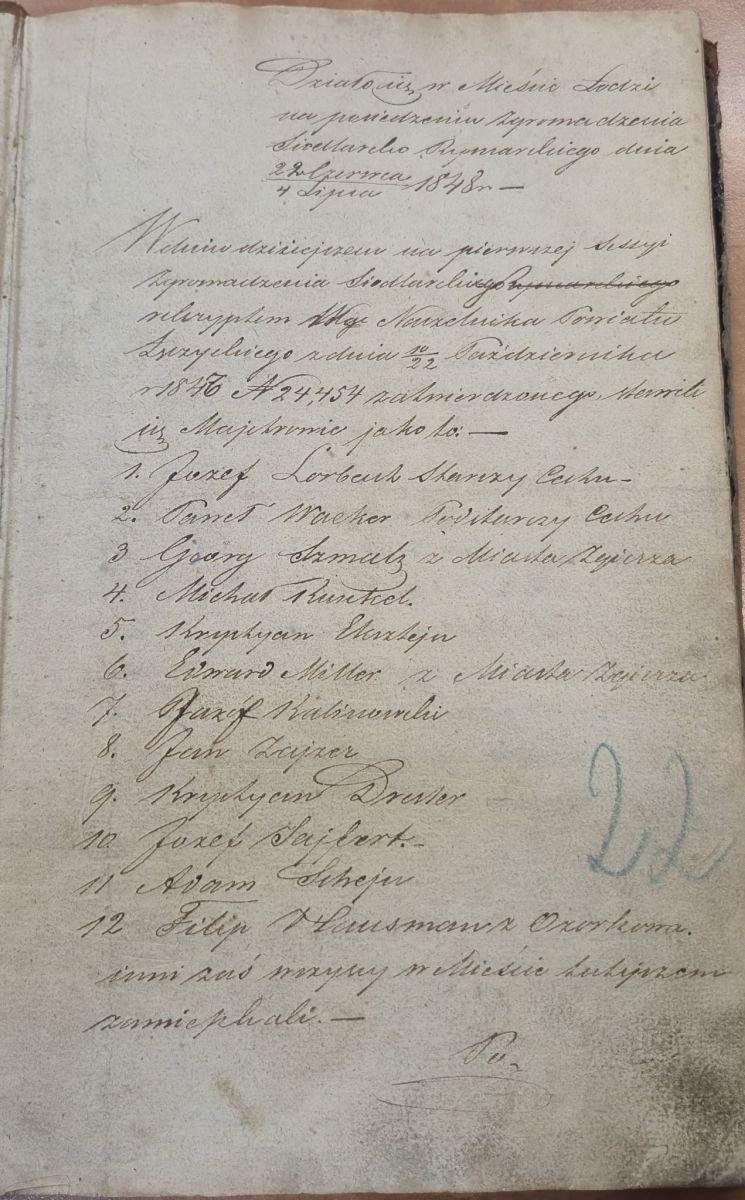 Działo się w Mieście Łodzi
na posiedzeniu Zgromadzenia
Siodlarsko Rymarskiego dnia
22 Czerwca
4 Lipca 1848 r —
W dniu dzisiejszem na pierwszej Sessyi
Zgromadzenia Siodlarskiego Rymarskiego
reskryptem Wgo Naczelnika Powiatu
Łęczyckiego z dnia 10/22 Października
r 1846 N 24,454 zatwierdzonego, stawili
się Majstrowie jako to: —
1. Jozef Lorbach Starszy Cechu —
2. Paweł Wacker Podstarszy Cechu
3 Georg Szmalz z Miasta Zgierza
4. Michał Kunkel.
5. Krystyan Eksztejn
6. Edward Miller z Miasta Zgierza
7. Jozef Kalinowski
8. Jan Zajzer
9. Krystyan Drexler
10 Jozef Sajbert. —
11 Adam Schejn
12 Filip Hausman z Ozorkowa.
inni zaś wszyscy w Mieście tutejszem
zamieszkali. —
Po-
22